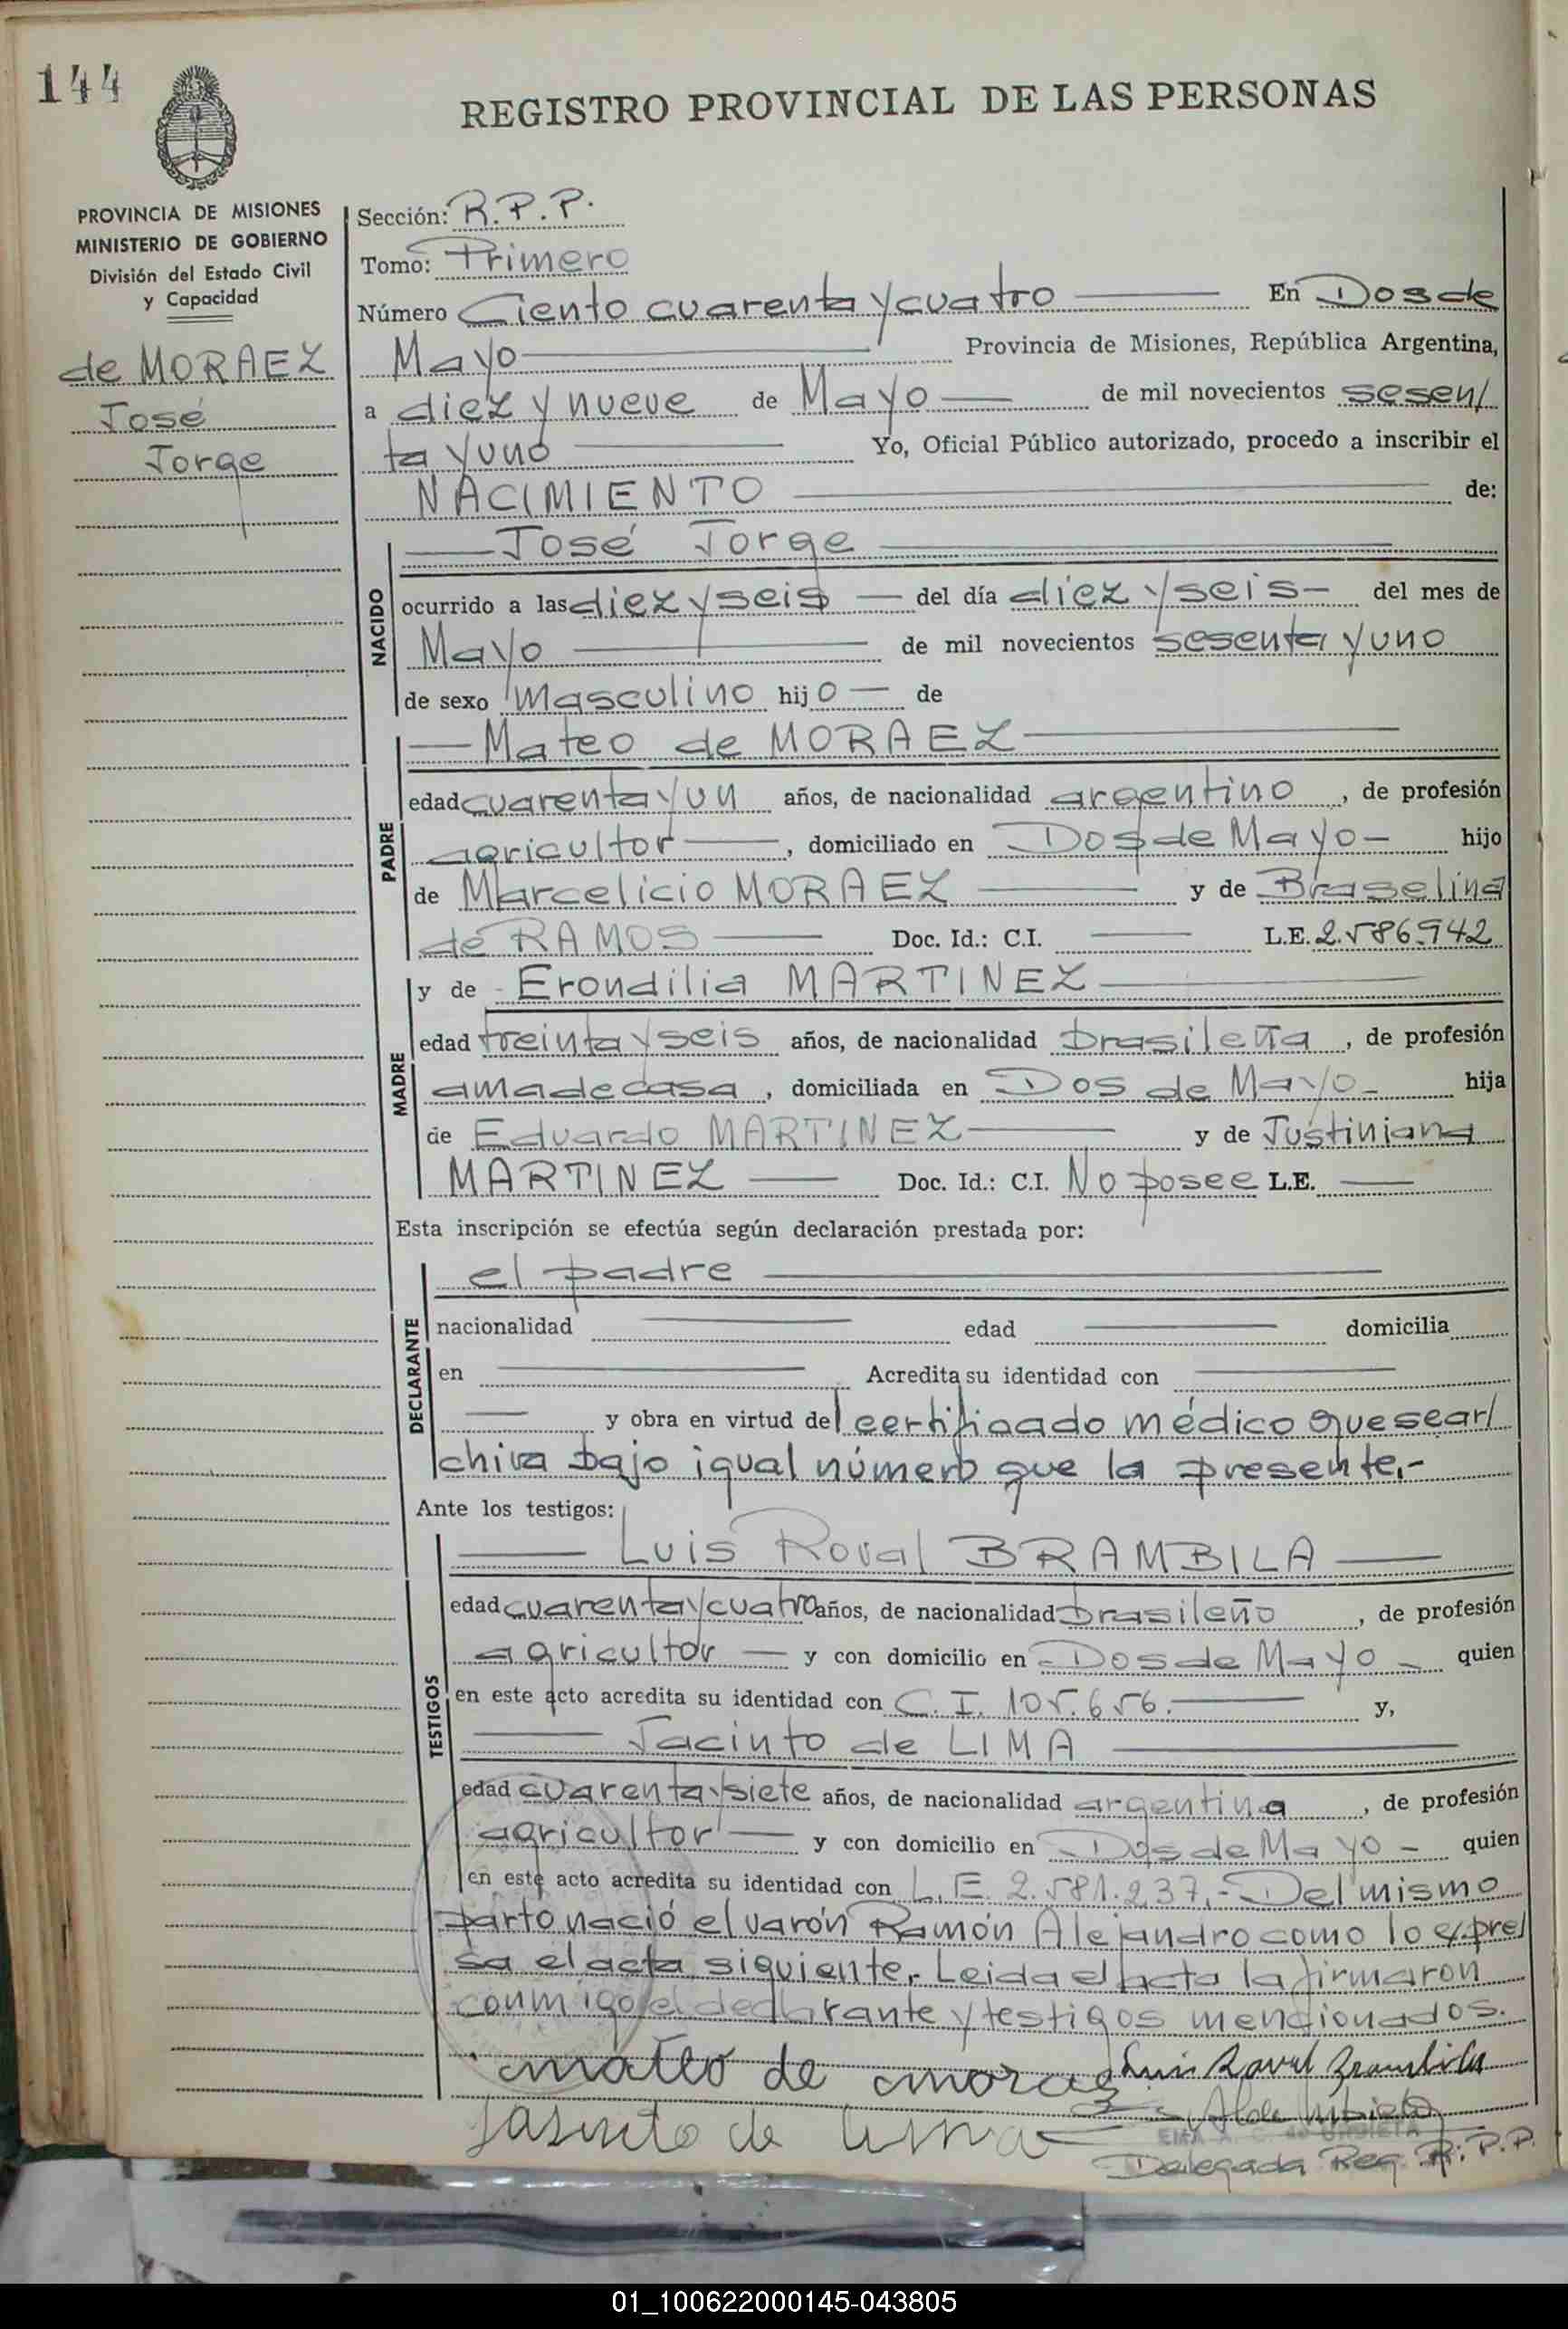 144
REGISTRO PROVINCIAL DE LAS PERSONAS
PROVINCIA DE MISIONES
MINISTERIO DE GOBIERNO
División del Estado Civil
y Capacidad
de MORAEZ
José
Jorge
Sección: R.P.P.
Tomo: Primero
Número Ciento cuarenta y cuatro En Dos de
Mayo Provincia de Misiones, República Argentina,
a diez y nueve de Mayo de mil novecientos sesen/
ta y uno Yo, Oficial Público autorizado, procedo a inscribir el
NACIMIENTO de:
NACIDO
José Jorge
ocurrido a las diez y seis del día diez y seis del mes de
Mayo de mil novecientos sesenta y uno
de sexo masculino hijo de
PADRE
Mateo de MORAEZ
edad cuarenta y un años, de nacionalidad argentino, de profesión
agricultor, domiciliado en Dos de Mayo hijo
de Marcelicio MORAEZ y de Braselina
de RAMOS Doc. Id.: C.I. L.E. 2.586.942
MADRE
y de Erondilia MARTINEZ
edad treinta y seis años, de nacionalidad brasileña, de profesión
ama de casa, domiciliada en Dos de Mayo hija
de Eduardo MARTINEZ y de Justiniana
MARTINEZ Doc. Id.: C.I. No posee L.E.
Esta inscripción se efectúa según declaración prestada por:
DECLARANTE
el padre
nacionalidad edad domicilia
en Acredita su identidad con
y obra en virtud del certificado médico que se ar/
chiva bajo igual número que la presente.-
Ante los testigos:
TESTIGOS
Luis Roval BRAMBILA
edad cuarenta y cuatro años, de nacionalidad brasileño, de profesión
agricultor y con domicilio en Dos de Mayo quien
en este acto acredita su identidad con C.I. 105.656. y,
Jacinto de LIMA
edad cuarenta y siete años, de nacionalidad argentina, de profesión
agricultor y con domicilio en Dos de Mayo quien
en este acto acredita su identidad con L.E. 2.581.237.- Del mismo
parto nació el varón Ramón Alejandro como lo expre/
sa el acta siguiente. Leida el acta la firmaron
conmigo el declarante y testigos mencionados.
mateo de moraez Luis Roval Brambila
Jasinto de lima
Delegada Reg. R.P.P.
01_100622000145-043805